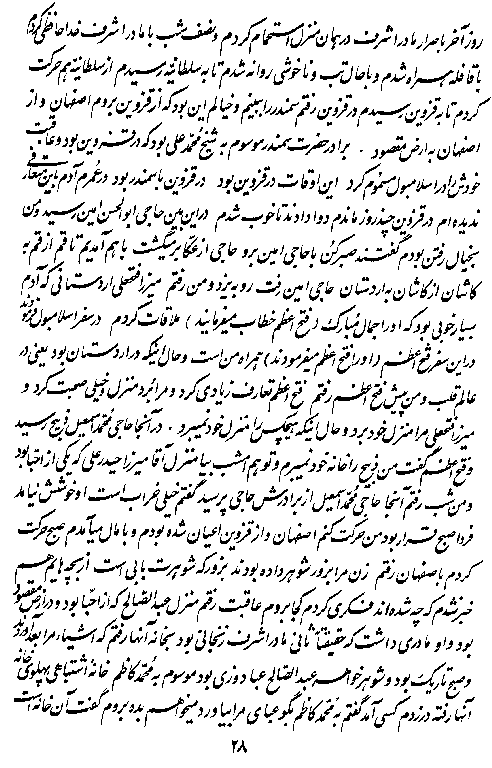 روز آخر باصرار مادر اشرف در همان منزل استحمام کردم و نصف شب با مادر اشرف خدا حافظی کردم
با قافله همراه شدم و با حال تب و ناخوشی روانه شدم تا به سلطانیّه رسیدم از سلطانیّه هم حرکت
کردم تا به قزوین رسیدم در قزوین رفتم سمندر را ببینم و خیالم این بود که از قزوین بروم اصفهان و از
اصفهان به ارض مقصود . برادر حضرت سمندر موسوم به شیخ محمّد علی بود که در قزوین بود و عاقبت
خودش را در اسلامبول مسموم کرد این اوقات در قزوین بود در قزوین با سمندر بود در عمرم آدم باین صفا
ندیده ام در قزوین چند روز ماندم دوا دادند تا خوب شدم در این بین حاجی ابوالحسن امین رسید و من
بخیال رفتن بودم گفتند صبر کن با حاجی امین برو حاجی از عکّا بر میگشت با هم آمدیم تا قم از قم به
کاشان از کاشان به اردستان حاجی امین رفت رو به یزد و من رفتم میرزا فتحعلی اردستانی که آدم
بسیار خوبی بود که او را جمال مبارک ( فتح اعظم خطاب میفرمایند ) ملاقات کردم در سفر اسلامبول فرمودند
در این سفر فتح اعظم ( او را فتح اعظم میفرمودند ) همراه من است و حال اینکه در اردستان بود یعنی در
عالم قلب و من پیش فتح اعظم رفتم فتح اعظم تعارف زیادی کرد و مرا برد منزل خیلی صحبت کرد و
میرزا فتحعلی مرا منزل خود برد و حال اینکه هیچکس را منزل خود نمیبرد . در آنجا حاجی محمّد اسمعیل ذبیح رسید
و فتح اعظم گفت من ذبیح را خانه خود نمیبرم و تو هم امشب بیا منزل آقا میرزا حیدر علی که یکی از احبّا بود
و من شب رفتم آنجا حاجی محمّد اسمعیل از برادرش حاجی پرسید گفتم خیلی خراب است او خوشش نیامد
فردا صبح قرار بود من حرکت کنم اصفهان و از قزوین اعیان شده بودم و با مال میآمدم صبح حرکت
کردم باصفهان رفتم زن مرا بزور شوهر داده بودند بزور که شوهرت بابی است از بچه هایم هم
خبر نشدم که چه شده اند فکری کردم کجا بروم عاقبت رفتم منزل عبدالصّالح که از احبّا بود و در ارض مقصود
بود و او مادری داشت که حقیقتاً ثانی مادر اشرف زنجانی بود بخانه آنها رفتم که اشیاء مرا بعد آوردند
و صبح تاریک بود و شوهر خواهر عبدالصّالح عبا دوزی بود موسوم به محمّد کاظم خانه اشتباهی پهلوی خانه
آنها رفته در زدم کسی آمد گفتم به محمّد کاظم بگو عبای مرا بیاور د میخواهم بده بروم گفت آن خانه است
۲۸